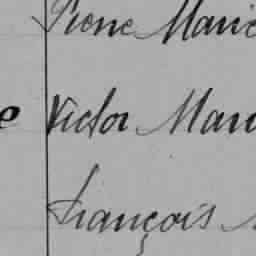 Pierre Marie
e Victor Mari
François